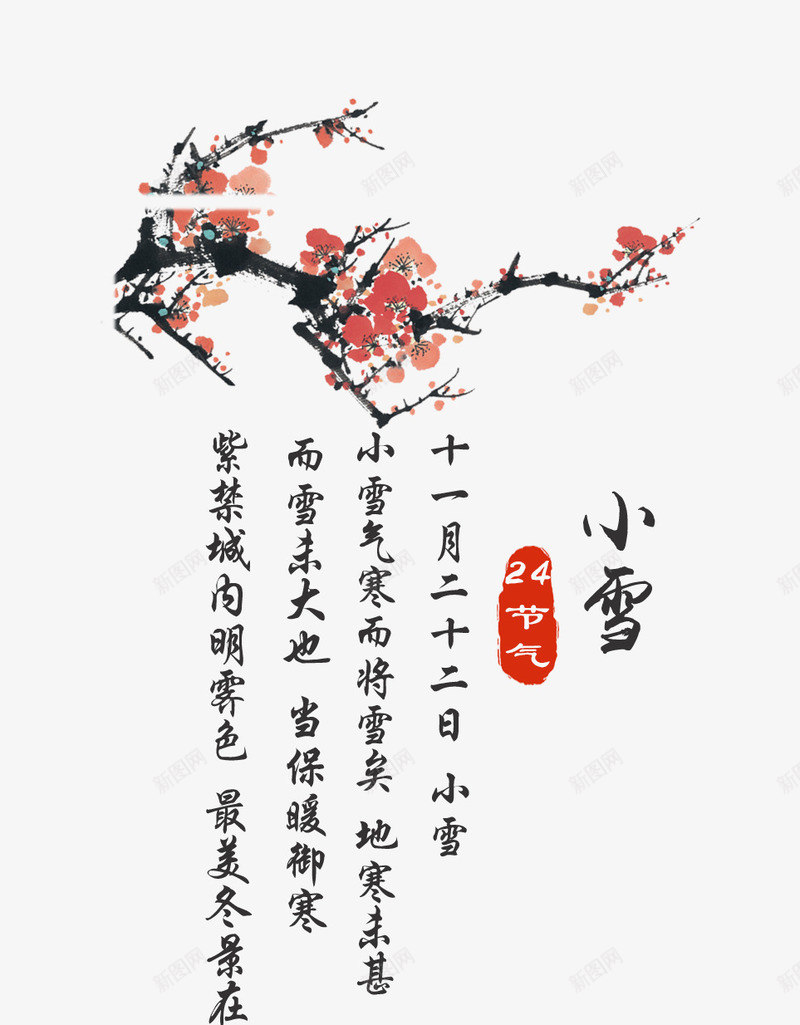 小雪
24
节
气
十一月二十二日 小雪
小雪气寒而将雪矣 地寒未甚
而雪未大也 当保暖御寒
紫禁城内明霁色 最美冬景在
新图网